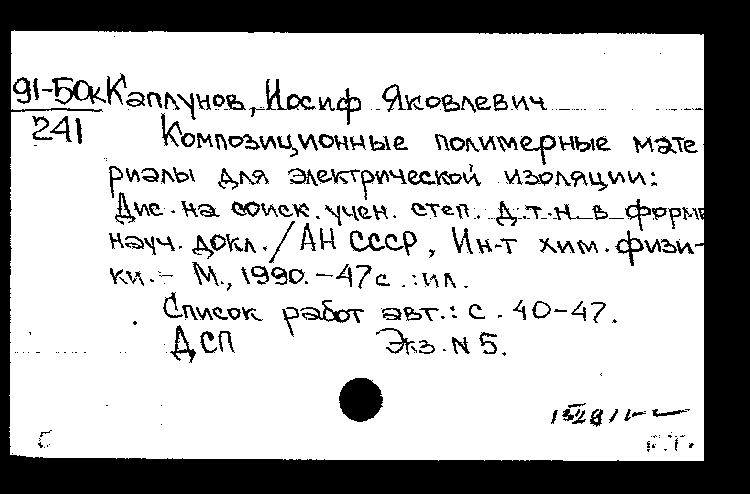 91-50к Каплунов, Иосиф Яковлевич
241 Композиционные полимерные мате
риалы для электрической изоляции:
Дис. на соиск. учен. степ. д.т.н. в форме
науч. докл. / АН СССР, Ин-т хим. физи-
ки. - М., 1990. - 47 с. : ил.
Список работ авт.: с. 40-47.
ДСП Экз. N 5.